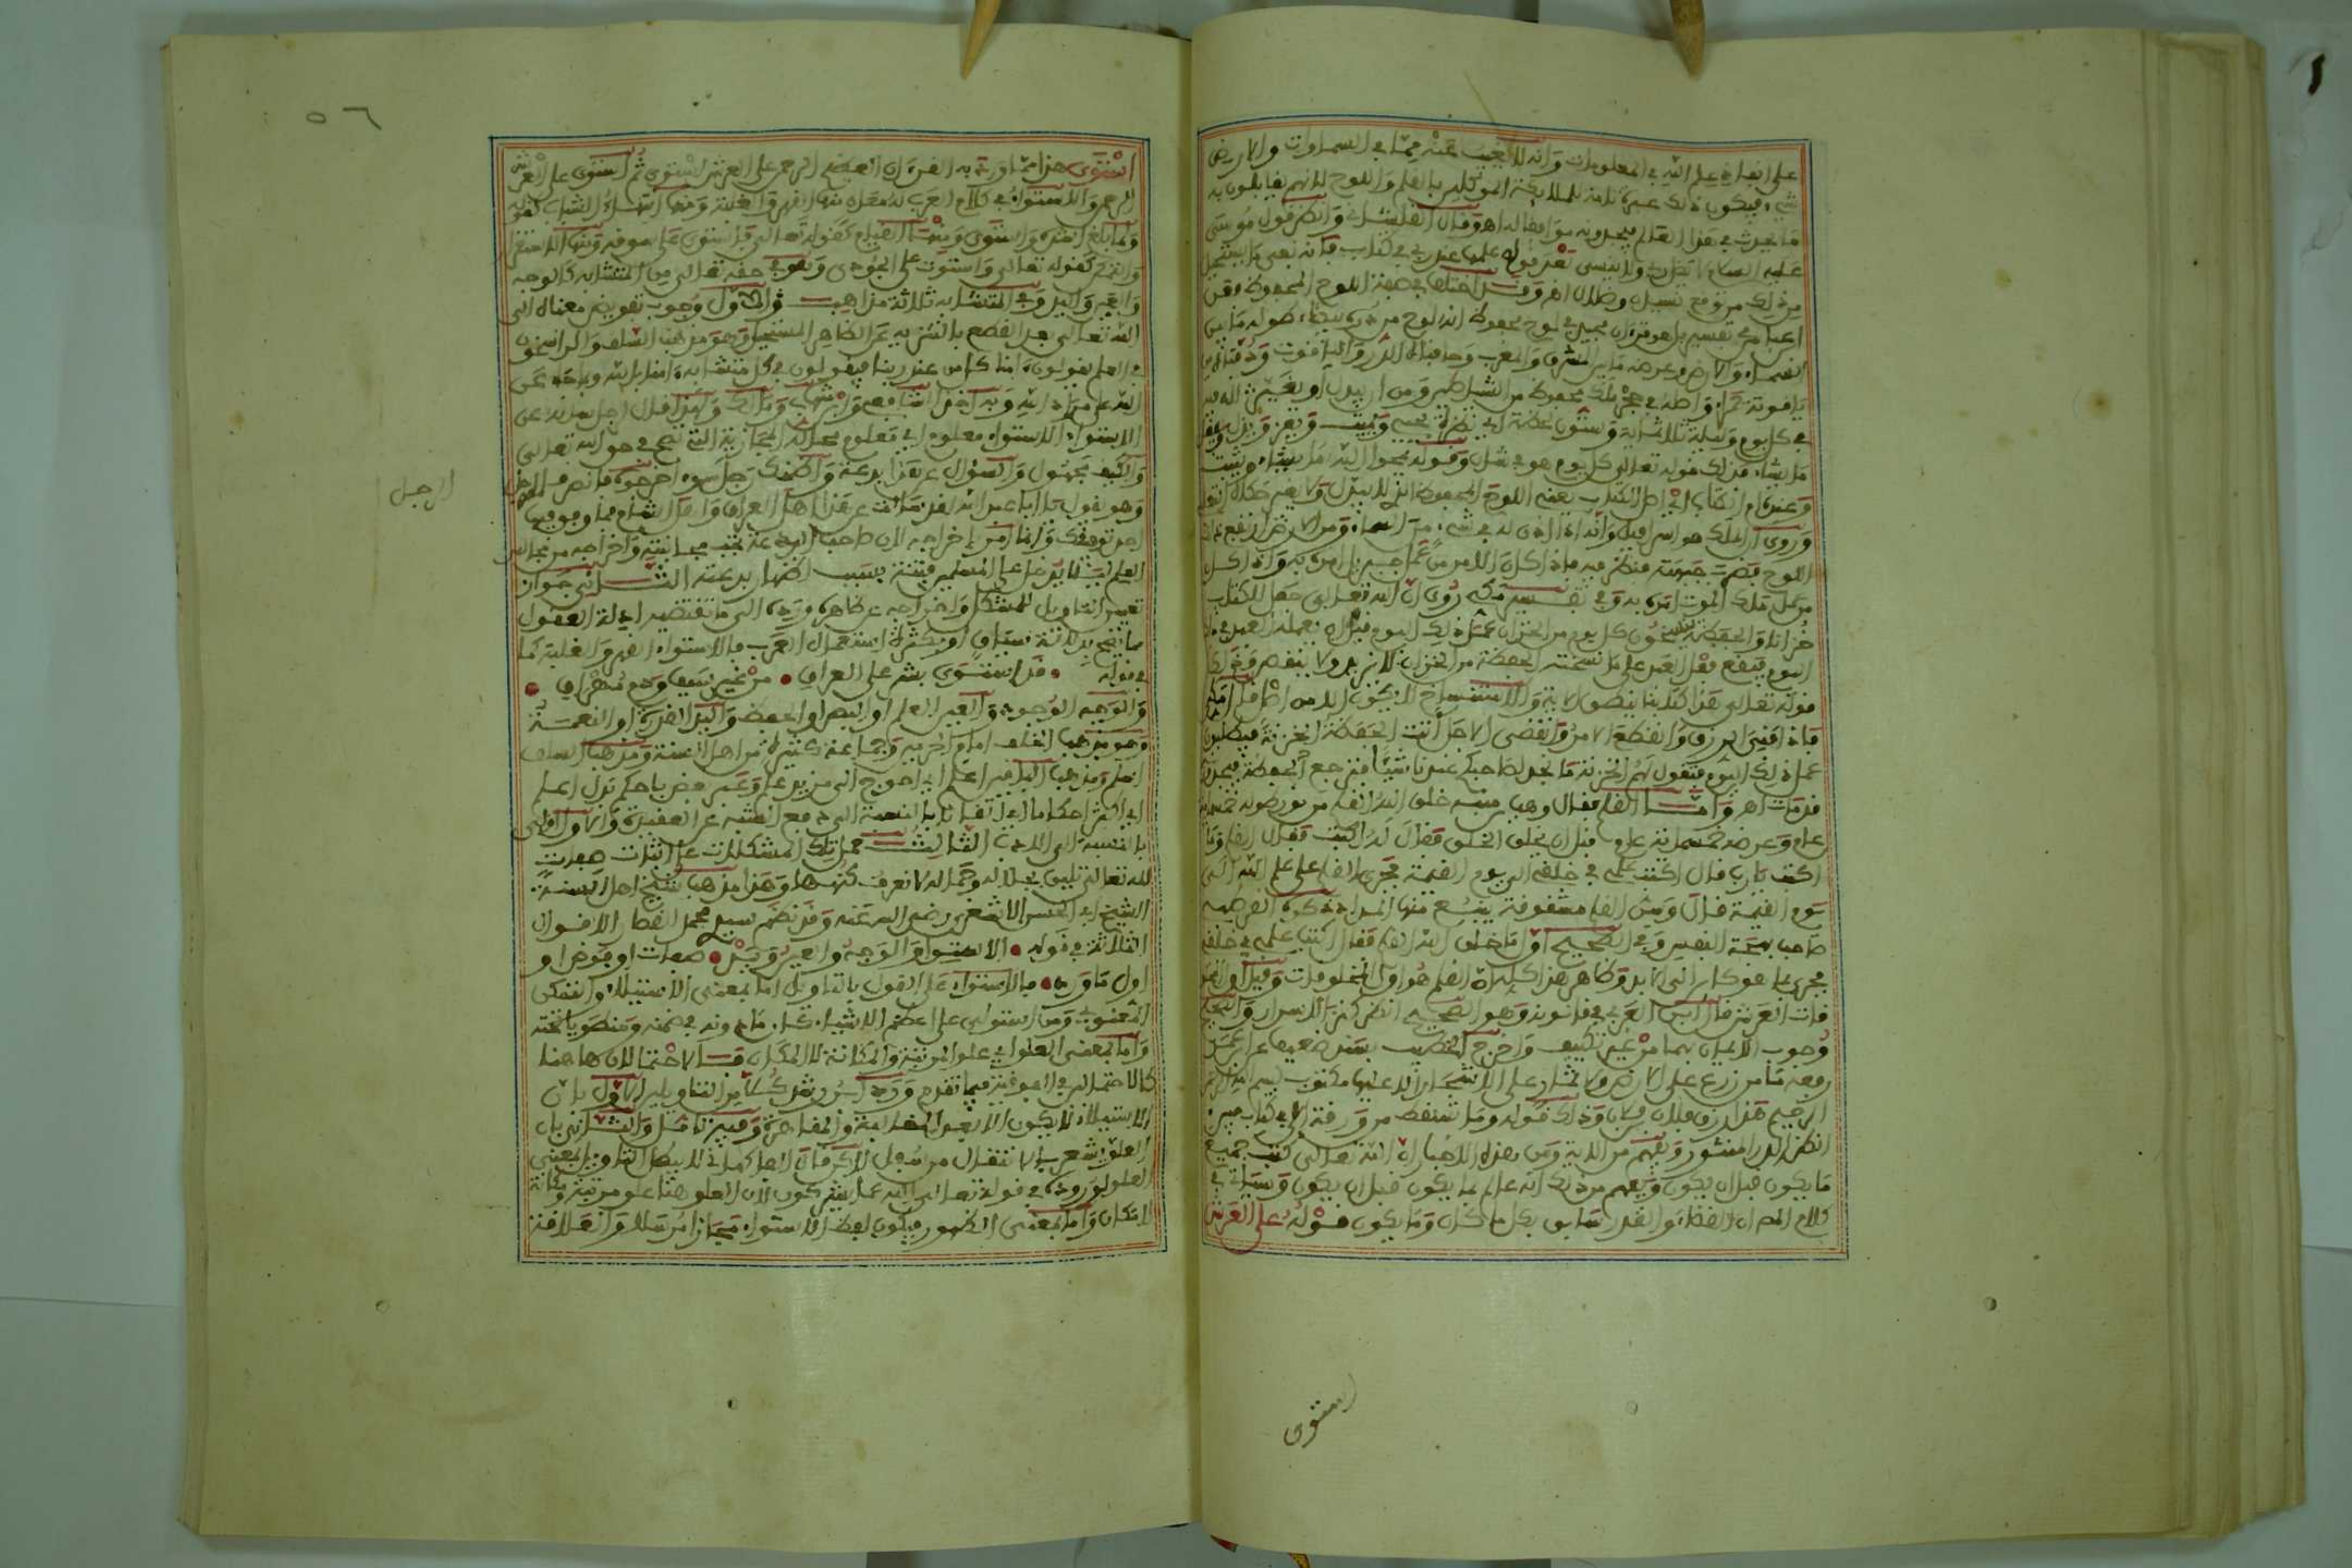 على انفاذ علم الله في المعلومات وانه لا يغيب عنه مما في السماوات والارض
شيء فيكون ذلك عبرة تامة للملائكة الموكلين بالقلم واللوح لانهم يقابلون به
ما يحدث في هذا العالم فيجدونه موافقا له اهـ وقال القلشاني وانظر قول موسى
عليه السلام لا يضل ربي ولا ينسى بعد قوله علمها عند ربي في كتاب فانه نفى ما يستحيل
من ذلك من توقع نسيان وضلال اهـ وقد اختلف في صفة اللوح المحفوظ فعن
ابن عباس في تفسير بل هو قرءان مجيد في لوح محفوظ انه لوح من درة بيضاء طوله ما بين
السماء والارض وعرضه ما بين المشرق والمغرب وحافتاه الدر والياقوت ودفتاه من
ياقوتة حمراء واصله في حجر ملك محفوظ من الشياطين ومن ان يبدل او يغير لله فيه
في كل يوم وليلة ثلاثمائة وستون لحظة اي نظرة يحيي ويميت ويعز ويذل ويفعل
ما يشاء فذلك قوله تعالى كل يوم هو في شأن وقوله يمحوا الله ما يشاء ويثبت
وعنده ام الكتاب اي اصل الكتاب يعني اللوح المحفوظ الذي لا يبدل ولا يغير
وروي ان الملك هو اسرافيل وانه اذا اذن له في شيء من السماء او من الارض ارتفع ذلك
اللوح فضرب جبهته فينظر فيه فاذا كان الامر من عمل جبريل امره به واذا كان
من عمل ملك الموت امره به وفي تفسير مكي روي ان الله تعالى جعل للكتاب
خزانا والحفظة ينسخون كل يوم من الخزان عمل ذلك اليوم فيما يعمله العبد في ذلك
اليوم فيقع فعل العبد على ما نسخته الحفظة من الخزان لا يزيد ولا ينقص
قوله تعالى هذا كتابنا ينطق الاية والاستنساخ لا يكون الا من اصل
فاذا افنى الرزق وانقطع الامر وانقضى الاجل اتت الحفظة الخزنة فيطلبون
عمل ذلك اليوم فتقول لهم الخزنة ما نجد لصاحبكم عندنا شيئا فترجع الحفظة فيجدونه
قد مات اهـ واما القلم فقال وهب بن منبه خلق الله القلم من نور طوله خمسمائة
عام وعرضه خمسمائة عام قبل ان يخلق الخلق فقال له اكتب فقال القلم وما
اكتب يا رب قال اكتب علمي في خلقي الى يوم القيمة فجرى القلم على علم الله الى
يوم القيمة قال وسن القلم مشقوقة ينبع منها المداد ذكره القرطبي
صاحب بهجة النفس وفي الصحيح اول ما خلق الله القلم فقال اكتب علمي في خلقي
فجرى بما هو كائن الى الابد وظاهر هذا كله ان القلم هو اول المخلوقات وقيل اول المخلو
قات العرش قال ابن العربي في قانونه وهو الصحيح انظر كنز الاسرار والصحيح
وجوب الايمان بهما من غير تكييف واخرج الخطيب بسند ضعيف عن ابن عمر
رفعه ما من زرع على الارض ولا ثمار على الاشجار الا عليها مكتوب بسم الله الرحمن
الرحيم هذا رزق فلان بن فلان وذلك قوله وما تسقط من ورقة الى في كتاب مبين
انظر الدر المنثور ويفهم من الاية ومن هذه الاخبار ان الله تعالى كتب جميع
ما يكون قبل ان يكون ويفهم من ذلك انه عالم بما يكون قبل ان يكون وسياتي في
كلام المص ان القضاء والقدر سابق بكل ما كان وما يكون قوله على العرش
استوى
٥٦
استوى هذا مما ورد به القرءان العظيم الرحمن على العرش استوى ثم استوى على العرش
الرحمن والاستواء في كلام العرب له معان منها القهر والغلبة ومنها انتهاء الشباب كقوله
ولما بلغ اشده واستوى ومنها القيام كقوله تعالى فاستوى على سوقه ومنها الاستقرار
والتمكن كقوله تعالى واستوت على الجودي وهو في حقه تعالى من المتشابه كالوجه
والعين واليد وفي المتشابه ثلاثة مذاهب الاول وجوب تفويض معناه الى
الله تعالى بعد القطع بالتنزيه عن الظاهر المستحيل وهو مذهب السلف والراسخون
في العلم يقولون ءامنا كل من عند ربنا فيقولون في كل متشابه ءامنا بالله وبما جاء عن
الله على مراد الله وبه اخذ الشافعي وابن شهاب ومالك ولهذا قال اجل سائله عن
الاستواء الاستواء معلوم اي معلوم محامله المجازية التي تصح في حق الله تعالى
والكيف مجهول والسؤال عن هذا بدعة واظنك رجل سوء اخرجوه فانصرف الرجل
وهو يقول يا ابا عبد الله لقد سالت عن هذا اهل العراق واهل الشام فما وفق فيها
احد توفيقك وانما امر باخراجه لان صاحب البدعة تجب مجانبته واخراجه من مجالس
العلم لئلا يدخل على المسلمين فتنة بسبب اظهار بدعته الثاني جواز
تعيين التاويل للمشكل واخراجه عن ظاهره ورده الى ما تقتضيه ادلة العقول
مما يصح بدلالة سياق او بكثرة استعمال العرب فالاستواء القهر والغلبة كما
في قوله • قد استوى بشر على العراق • من غير سيف ودم مهراق •
والوجه الوجود والعين العلم او البصر او الحفظ واليد القدرة او النعمة
وهو مذهب الخلف امام الحرمين وجماعة كثيرة من اهل السنة ومذهب السلف
اسلم ومذهب الخلف اعلم اي احوج الى مزيد علم وعبر بعض باحكم بدل اعلم
اي اكثر احكاما اي اتقانا بالنسبة الى دفع الشبه عن العقيدة والاول اولى
بالنسبة الى الادب الثالث حمل تلك المشكلات على اثبات صفات
لله تعالى تليق بجلاله وجماله لا نعرف كنهها وهذا مذهب شيخ اهل السنة
الشيخ ابي الحسن الاشعري رضي الله عنه وقد نظم سيدي محمد القصار الاقوال
الثلاثة في قوله • الاستوا والوجه والعين ويد • صفات او فوض او
اول ما ورد • فالاستواء على القول بالتاويل اما بمعنى الاستيلاء والتمكن
المعنوي ومن استولى على اعظم الاشياء كان ما دونه في ضمنه ومنطويا تحته
واما بمعنى العلو اي علو المرتبة والمكانة لا المكان فالاحتمالان هاهنا
كالاحتمالين في الفوقية فيما تقدم ورد ابن رشد كلا من التاويلين الاول بان
الاستيلاء لا يكون الا بعد المغالبة والمقاهرة وفيه تامل والثاني بان
العلو يشعر بالانتقال من سفل الاكرمان اهـ كما لا يبطل التاويل بمعنى
العلو لوروده في قوله تعالى الله عما يشركون لان العلو هنا علو مرتبة ومكانة
لا مكان واما بمعنى الظهور فيكون لفظ الاستواء مجازا مرسلا والعلاقة
الرجل